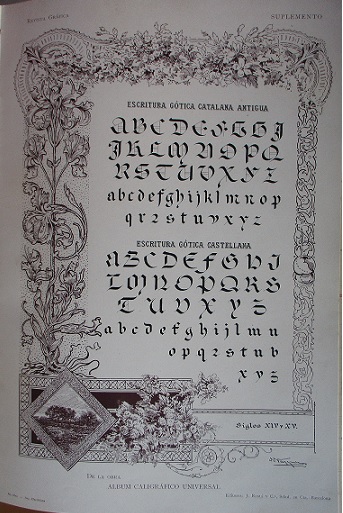 Revista Gráfica
SUPLEMENTO
ESCRITURA GÓTICA CATALANA ANTIGUA
A B C D E F G H I
J K L M N O P Q
R S T U V X Y Z
a b c d e f g h i j k l m n o p
q r z s t u v x y z
ESCRITURA GÓTICA CASTELLANA
A B C D E F G H I
L M N O P Q R S
T U V X Y Z
a b c d e f g h i j k l m n
o p q r s t u v
x y z
Siglos XIV y XV.
DE LA OBRA
ALBUM CALIGRÁFICO UNIVERSAL